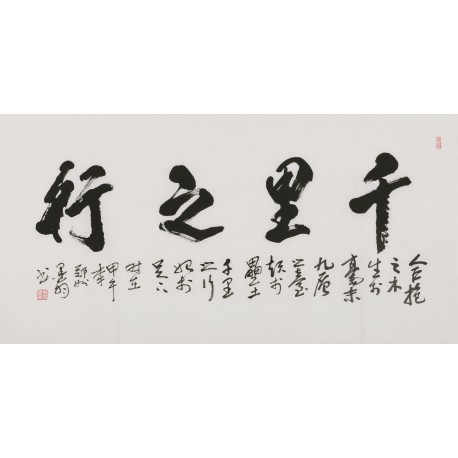 千里之行
合抱
之木
生於
毫末
九層
之臺
起於
壘土
千里
之行
始於
足下
时在
甲午
鄭州
書